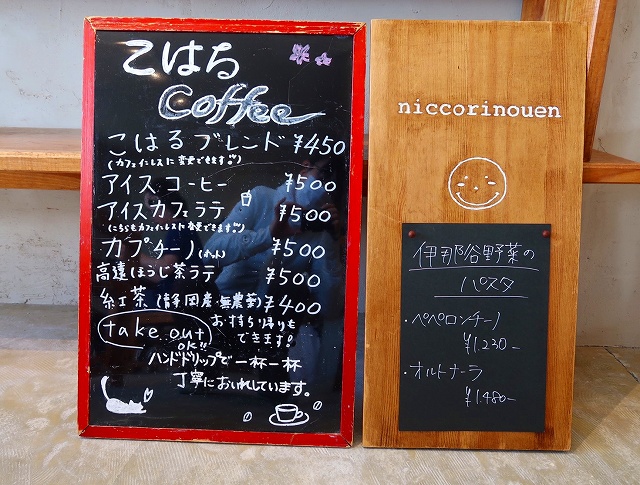 こはる
Coffee
こはるブレンド ¥450
(カフェインレスに変更できます!!)
アイスコーヒー ¥500
アイスカフェラテ ¥500
(こちらもカフェインレスに変更できます!!)
カプチーノ ¥500
高遠ほうじ茶ラテ ¥500
紅茶(静岡産・無農薬) ¥400
take out OK!!
お持ち帰りもできます!
ハンドドリップで一杯一杯
丁寧においれしています。
niccorinouen
伊那谷野菜の
パスタ
・ペペロンチーノ
¥1,230-
・オルトナーラ
¥1,480-